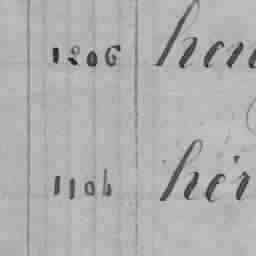 1206 hen
1104 hér